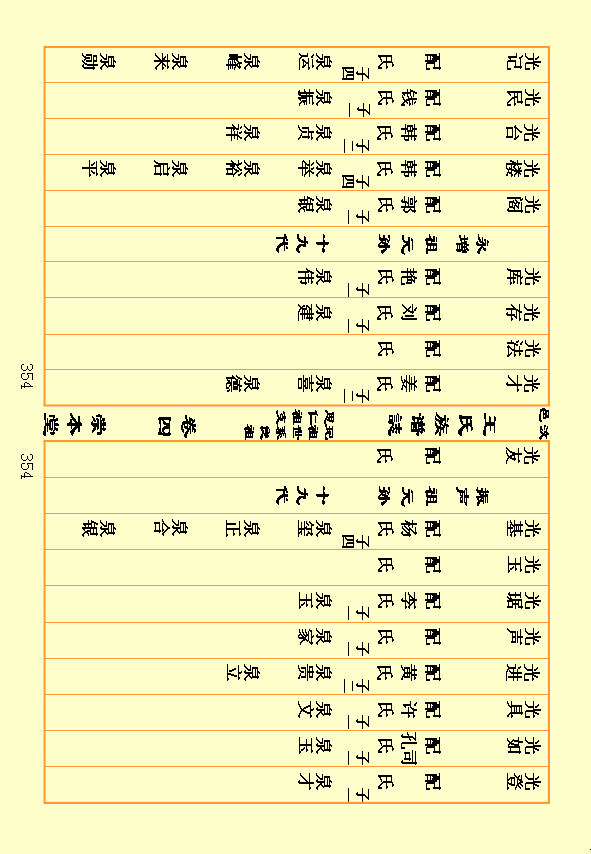 光登 配 氏 子一 泉才
光如 配孔司氏 子一 泉玉
光具 配许氏 子一 泉文
光进 配黄氏 子二 泉贵 泉立
光声 配 氏 子一 泉家
光琚 配李氏 子一 泉玉
光玉 配 氏
光基 配杨氏 子四 泉玺 泉正 泉合 泉银
振声祖元孙 十九代
光友 配 氏
354
汶邑 王氏族谱誌 卷四 崇本堂
354
光才 配姜氏 子二 泉喜 泉德
光法 配 氏
光存 配刘氏 子一 泉建
光库 配艳氏 子一 泉伟
永增祖元孙 十九代
光阁 配郭氏 子一 泉银
光楼 配韩氏 子四 泉举 泉裕 泉启 泉平
光台 配韩氏 子二 泉贞 泉祥
光民 配钱氏 子一 泉振
光记 配 氏 子四 泉运 泉峰 泉来 泉勋